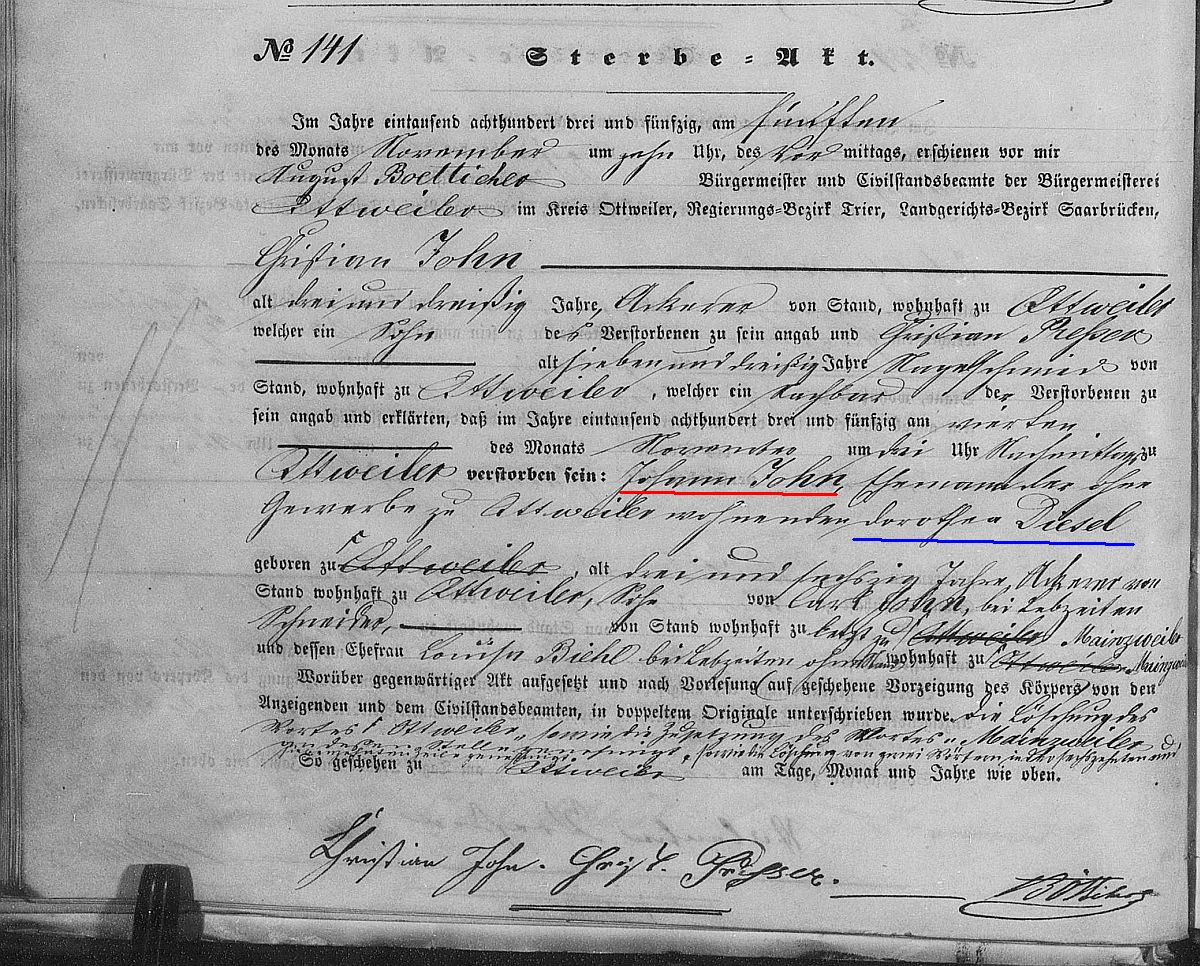 No 141 Sterbe-Akt.
Im Jahre eintausend achthundert drei und fünfzig, am fünften
des Monats November um zehn Uhr, des Vor mittags, erschienen vor mir
August Boetticher Bürgermeister und Civilstandsbeamte der Bürgermeisterei
Ottweiler im Kreis Ottweiler, Regierungs-Bezirk Trier, Landgerichts-Bezirk Saarbrücken,
Christian John
alt drei und dreißig Jahre, Ackerer von Stand, wohnhaft zu Ottweiler
welcher ein Sohn des Verstorbenen zu sein angab und Christian Presser
alt sieben und dreißig Jahre Nagelschmied von
Stand, wohnhaft zu Ottweiler, welcher ein Nachbar des Verstorbenen zu
sein angab und erklärten, daß im Jahre eintausend achthundert drei und fünfzig am vierten
des Monats November um drei Uhr Nachmittags zu
Ottweiler verstorben sein: Johann John, Ehemann der ohne
Gewerbe zu Ottweiler wohnenden Dorothea Diesel
geboren zu Ottweiler, alt drei und sechszig Jahre, Ackerer von
Stand wohnhaft zu Ottweiler, Sohn von Carl John, bei Lebzeiten
Schneider, von Stand wohnhaft zu letzt zu Ottweiler Mainzweiler
und dessen Ehefrau Louisa Biehl bei Lebzeiten ohne Stand wohnhaft zu Ottweiler Mainzweiler
Worüber gegenwärtiger Akt aufgesetzt und nach Vorlesung auf geschehene Vorzeigung des Körpers von den
Anzeigenden und dem Civilstandsbeamten, in doppeltem Originale unterschrieben wurde. Die Löschung des
Wortes "Ottweiler", sowie die Zusetzung des Wortes "Mainzweiler"
an dessen Stelle genehmigt, sowie die Löschung von zwei Wörtern in der sechszehnten und
So geschehen zu Ottweiler am Tage, Monat und Jahre wie oben.
Christian John. Christ. Presser. Bötticher